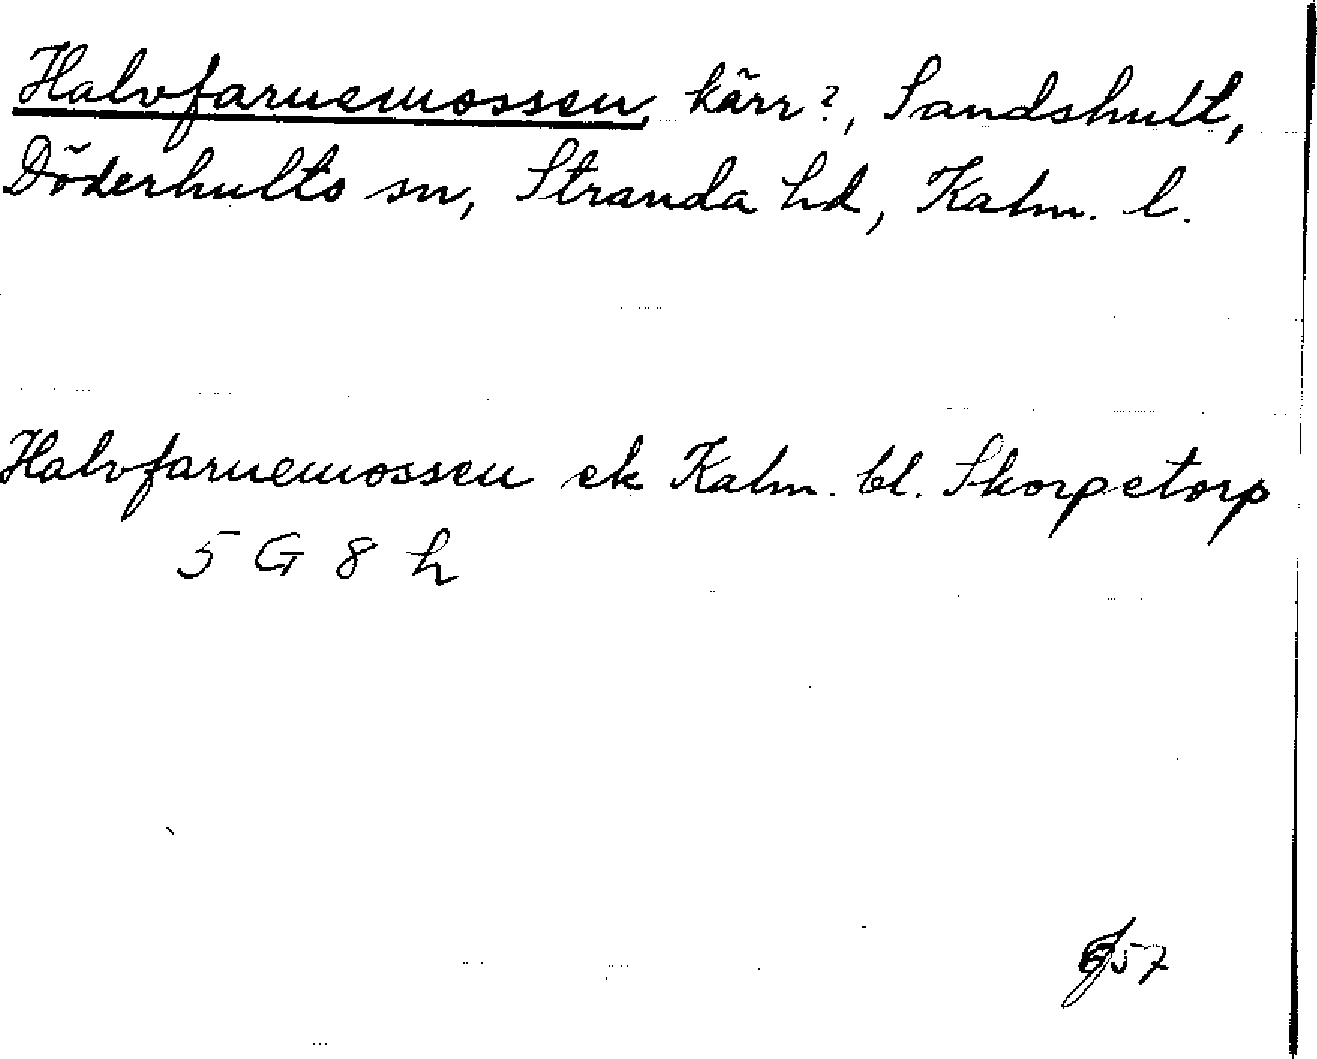 Halvfarnemossen, kärr?, Sandshult,
Döderhults sn, Stranda hd, Kalm. l.
Halvfarnemossen ek Kalm. bl. Skorpetorp
5 G 8 h
57